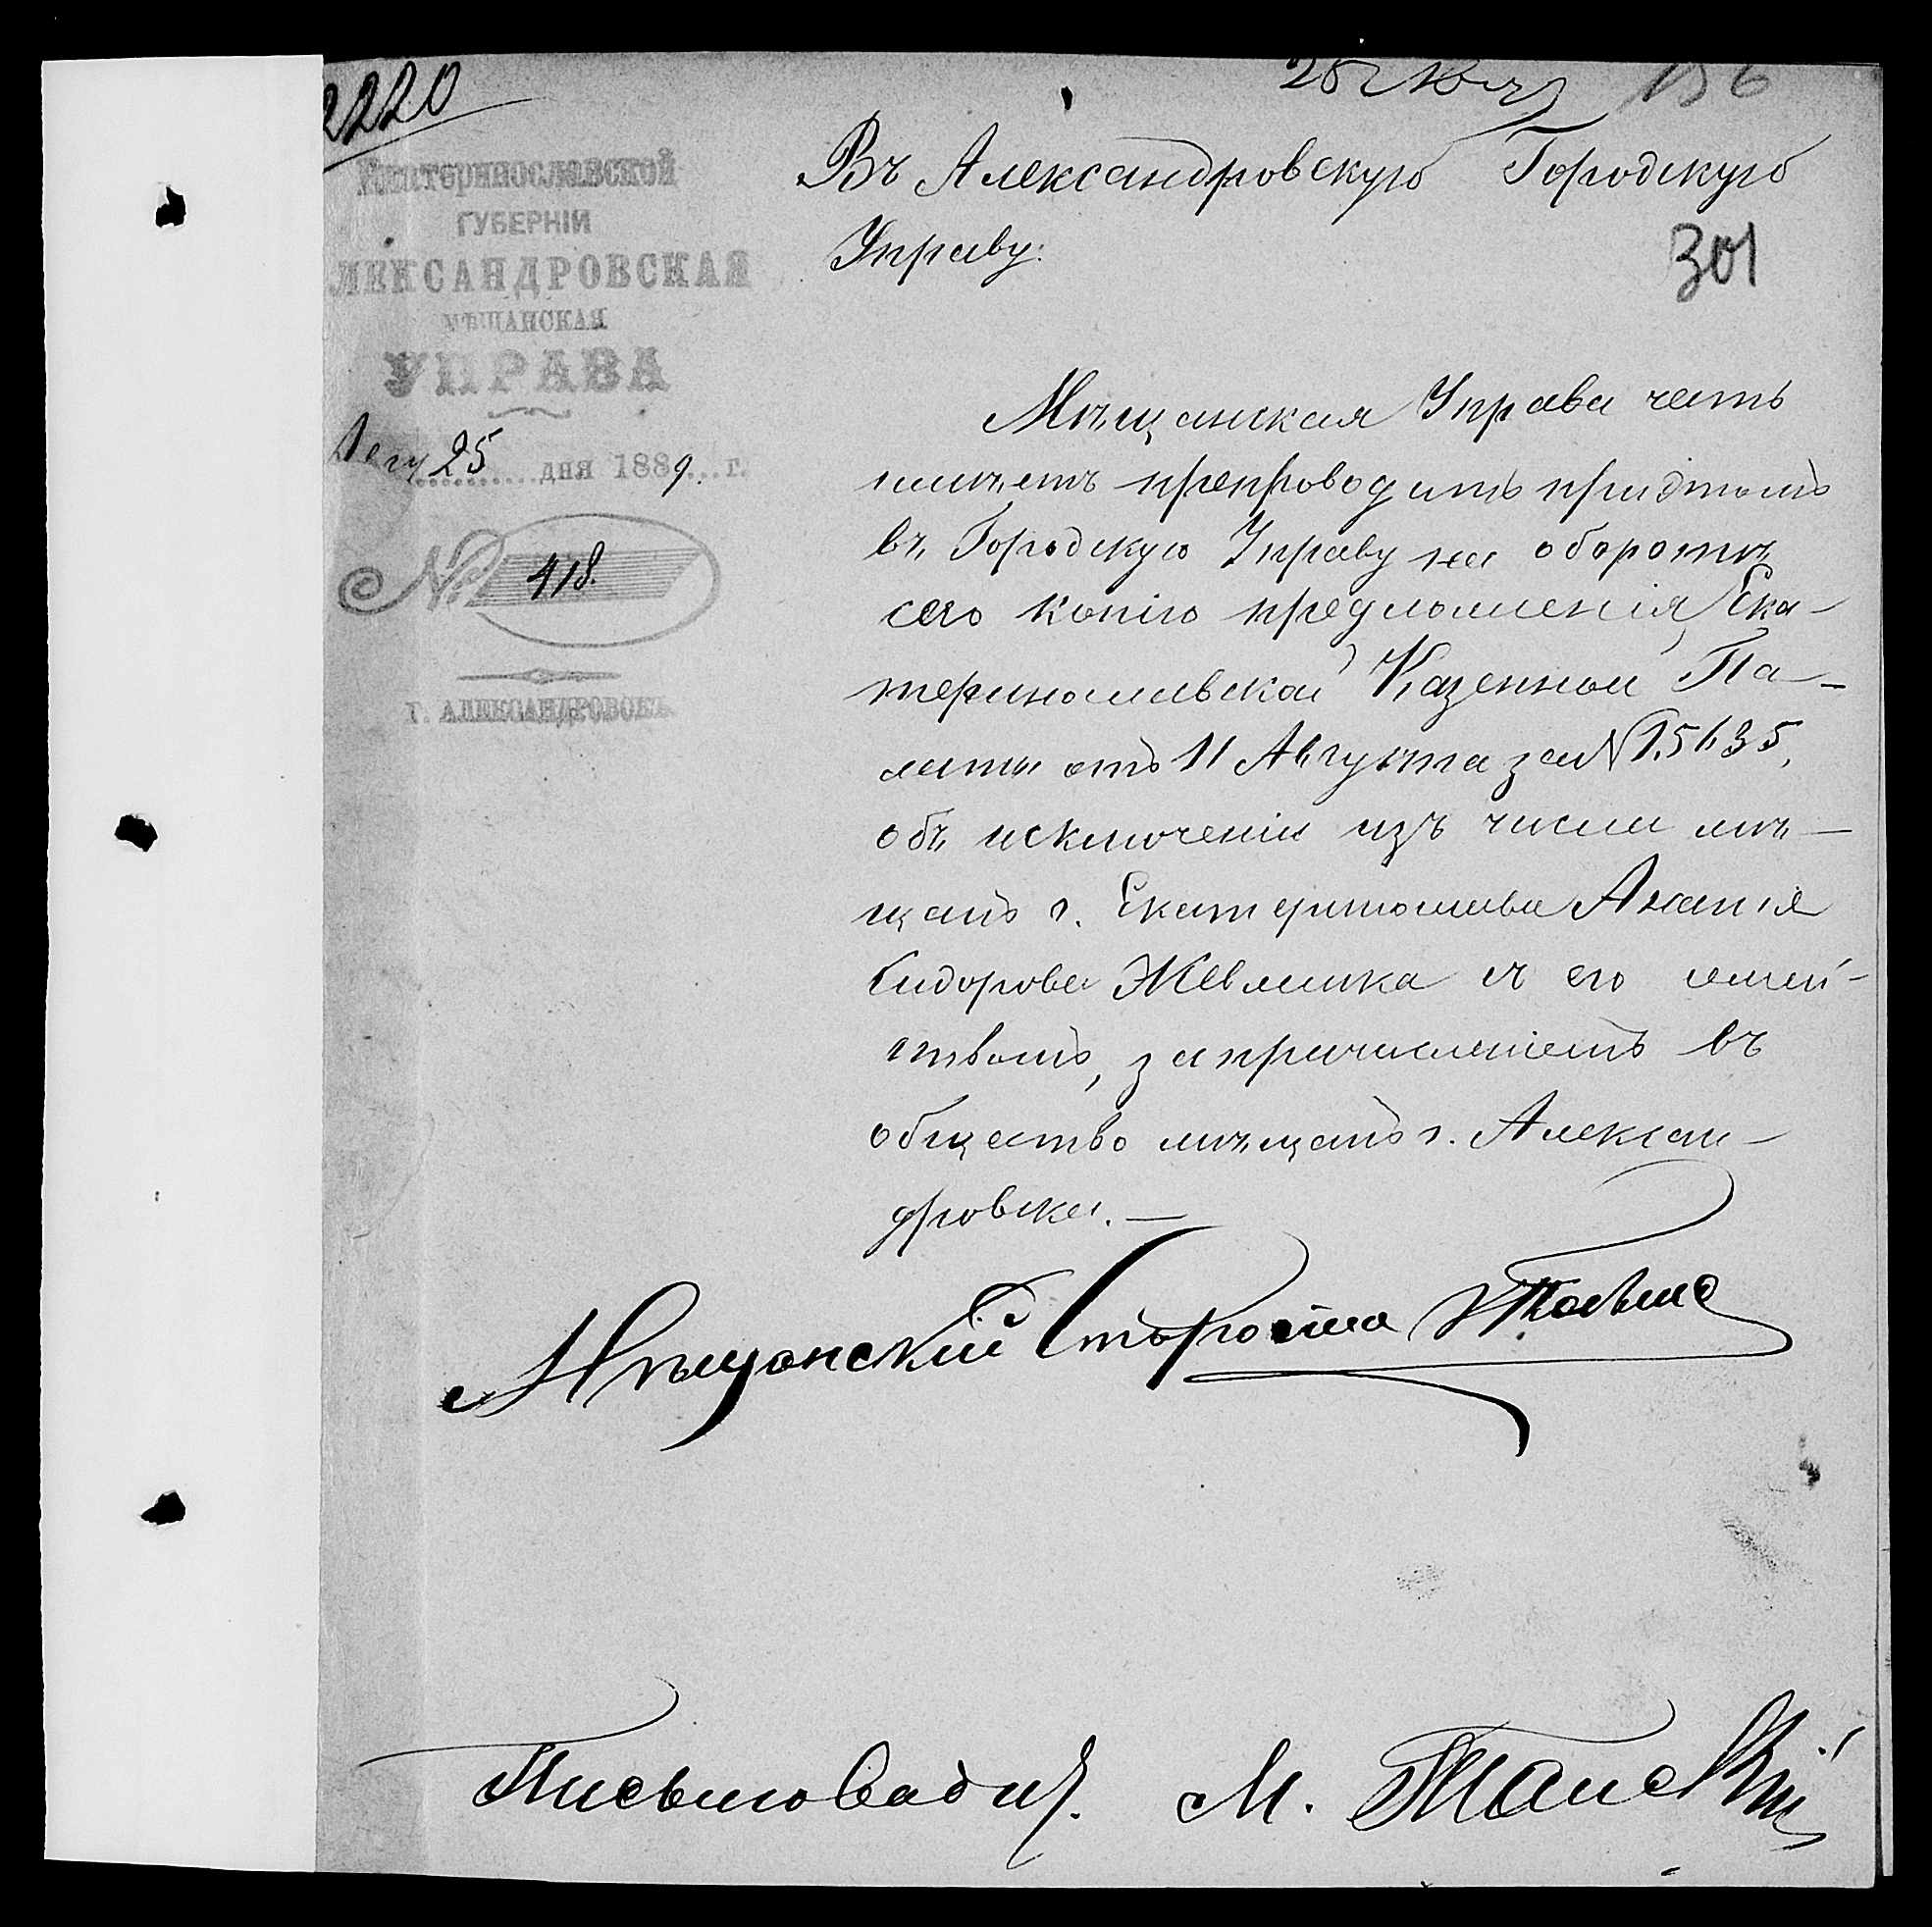 2220
156
Екатеринославской
ГУБЕРНІИ
ЛЕКСАНДРОВСКАЯ
МѢЩАНСКАЯ
УПРАВА
25 дня 1889 г.
№ 418.
г. АЛЕКСАНДРОВСКЪ
Въ Александровскую Городскую
Управу.
301
Мѣщанская Управа честь
имѣетъ препроводить при этомъ
въ Городскую Управу на оборотѣ
сего копію предложенія Ека-
теринославской Казенной Па-
латы отъ 11 Августа за № 15635,
объ исключеніи изъ числа мѣ-
щанъ г. Екатеринослава Ананія
Сидорова Жевлика съ его семей-
ствомъ, за причисленіемъ въ
общество мѣщанъ г. Алексан-
дровска.—
Мѣщанскій Староста
Письмовод. М.